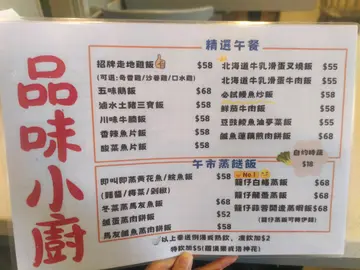 品味小廚
精選午餐
招牌走地雞飯 $58
(可選:奇香雞/沙薑雞/口水雞)
五味鵝飯 $68
滷水土豬三寶飯 $58
川味牛腩飯 $58
香辣魚片飯 $58
酸菜魚片飯 $58
北海道牛乳滑蛋叉燒飯 $55
北海道牛乳滑蛋牛肉飯 $55
必試鰻魚炒飯 $58
鮮茄牛肉飯 $58
豆豉鯪魚油麥菜飯 $55
鹹魚蓮藕煎肉餅飯 $68
自灼時蔬
$18
午市蒸餸飯
即叫即蒸黃花魚/鯇魚飯 $58
(豉醬/梅菜/剁椒)
冬菜蒸馬友魚飯 $68
鹹蛋蒸肉餅飯 $52
馬友鹹魚蒸肉餅飯 $58
No.1
籠仔白鱔蒸飯 $68
籠仔蒸飯 $68
籠仔蒜蓉開邊蒸蝦飯 $68
(籠仔蒸飯可轉伊麵)
以上套餐附湯或熱飲, 凍飲加$2
特飲加$5